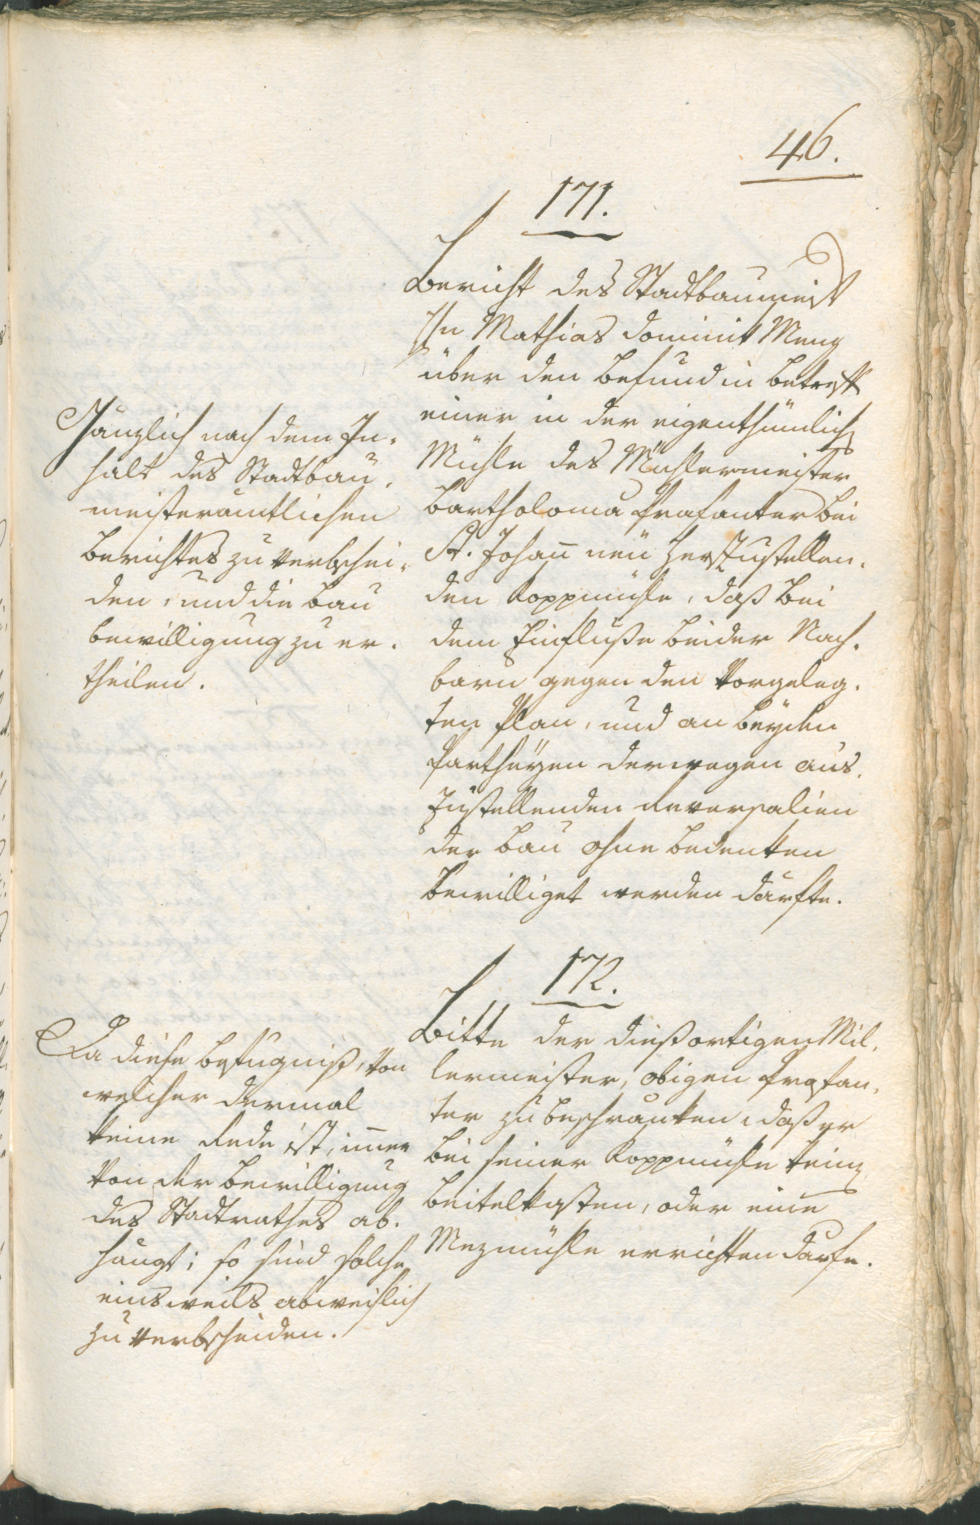 46.
171.
Bericht des Stadtbaumeist
H Mathias Dominik Meng
über den Befund in Betreff
einer in der eigenthümlich
Mühle des Müllermeister
Bartholomä Prafanter bei
St. Johann neü herzustellen-
den Koppmühle, daß bei
dem Einfluße beider Nach-
barn gegen den vorgeleg-
ten Plan, und an beyden
Partheyen derwegen aus-
zustellenden Reversalien
der Bau ohne Bedenken
bewilliget werden dürfte.
Gänzlich nach dem In-
halt des Stadtbau-
meisteramtlichen
Berichtes zu verbschei-
den, und die Bau
bewilligung zu er-
theilen.
172.
Bitte der dießortigen Mül-
lermeister, obigen Prafan-
ter zu beschränken, daß er
bei seiner Koppmühle kein
Beitelkasten, oder eine
Mezmühle errichten dürfe.
Da diese Befugniß, von
welcher dermal
keine Rede ist, immer
von der Bewilligung
des Stadtrathes ab-
hängt; so sind solche
einsweils abweislich
zu verbscheiden.